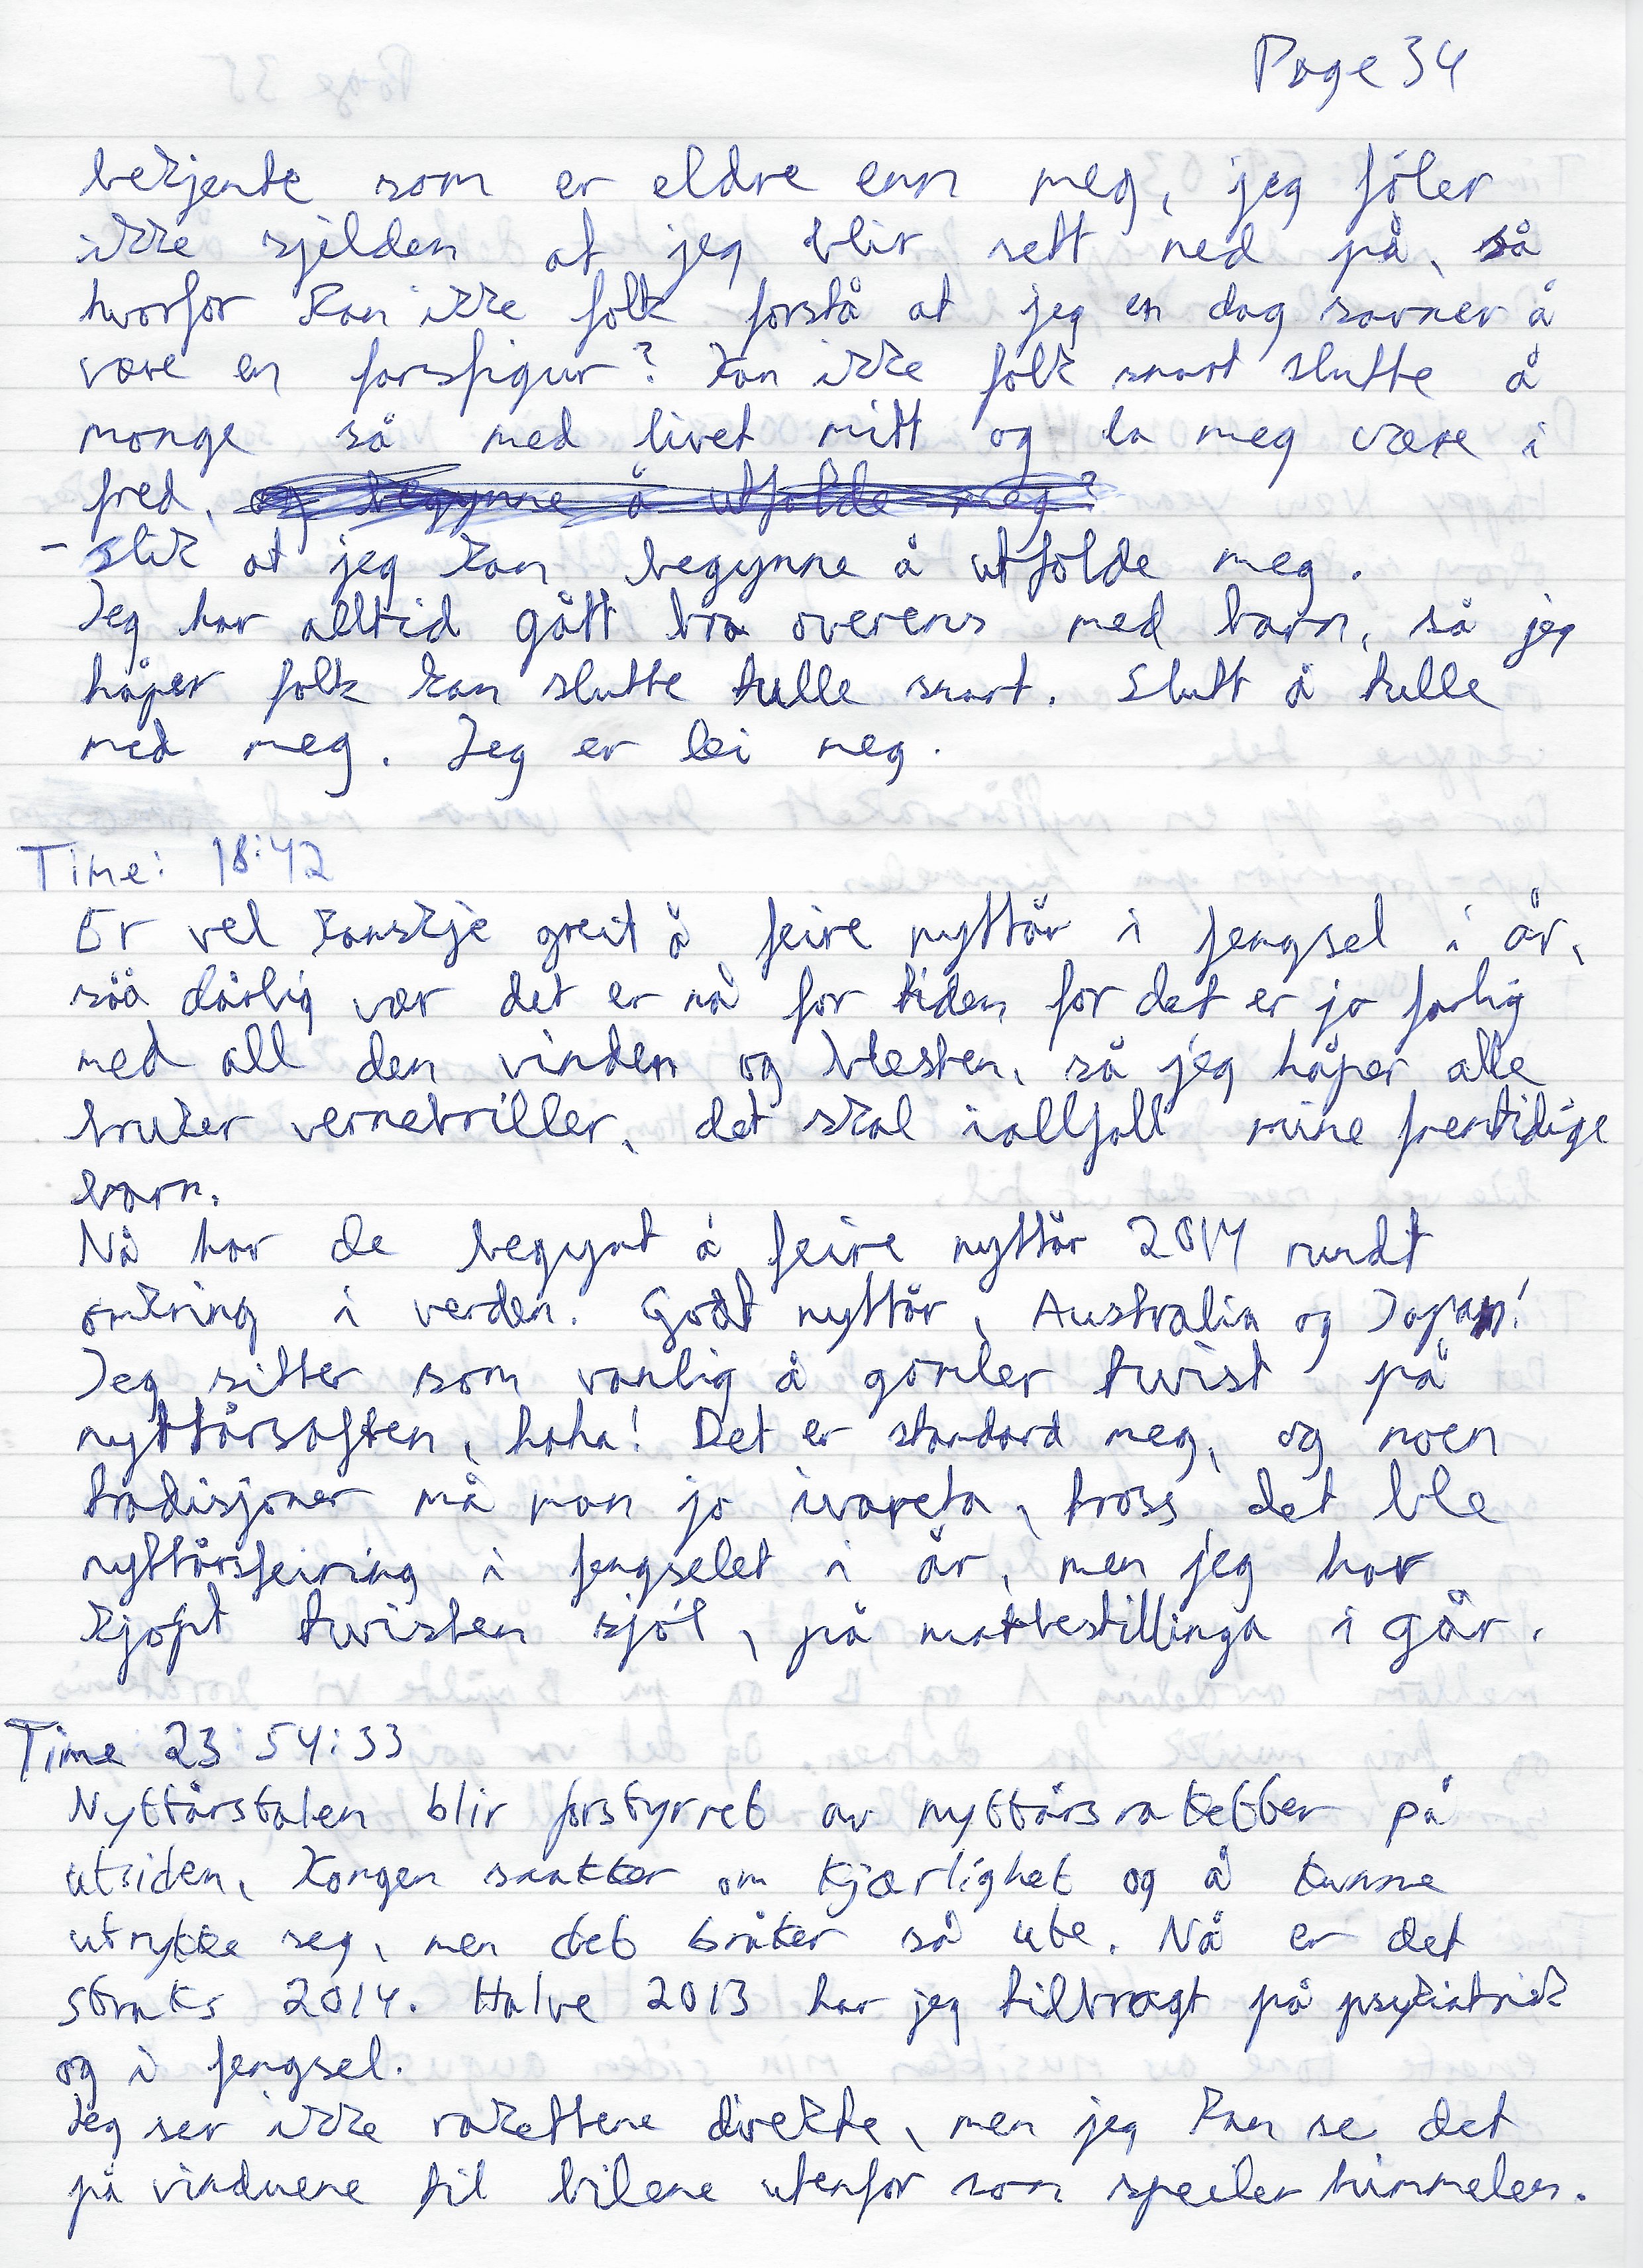 Page 34
bekjente som er eldre enn meg, jeg føler
ikke sjelden at jeg blir sett ned på, så
hvorfor kan ikke folk forstå at jeg en dag savner å
være en farsfigur? Kan ikke folk snart slutte å
mange så med livet mitt og la meg være i
fred, og begynne å utfolde meg?
- slik at jeg kan begynne å utfolde meg.
Jeg har alltid gått bra overens med barn, så jeg
håper folk kan slutte tulle snart. Slutt å tulle
med meg. Jeg er lei meg.
Time: 18:42
Er vel kanskje greit å feire nyttår i fengsel i år,
såå dårlig vær det er nå for tiden, for det er jo farlig
med all den vinden og blesten, så jeg håper alle
bruker vernebriller, det skal iallfall mine fremtidige
barn.
Nå har de begynt å feire nyttår 2014 rundt
omkring i verden. Godt nyttår, Australia og Japan!
Jeg sitter som vanlig å gomler twist på
nyttårsaften, haha! Det er standard meg, og noen
tradisjoner må man jo ivareta, tross det ble
nyttårsfeiring i fengselet i år, men jeg har
kjøpt twisten sjøl, på matbestillinga i går.
Time 23:54:33
Nyttårstalen blir forstyrret av nyttårsraketter på
utsiden, Kongen snakker om kjærlighet og å kunne
utrykke seg, men det bråker så ute. Nå er det
straks 2014. Halve 2013 har jeg tilbragt på psykiatrisk
og i fengsel.
Jeg ser ikke rakettene direkte, men jeg kan se det
på vinduene til bilene utenfor som speiler himmelen.